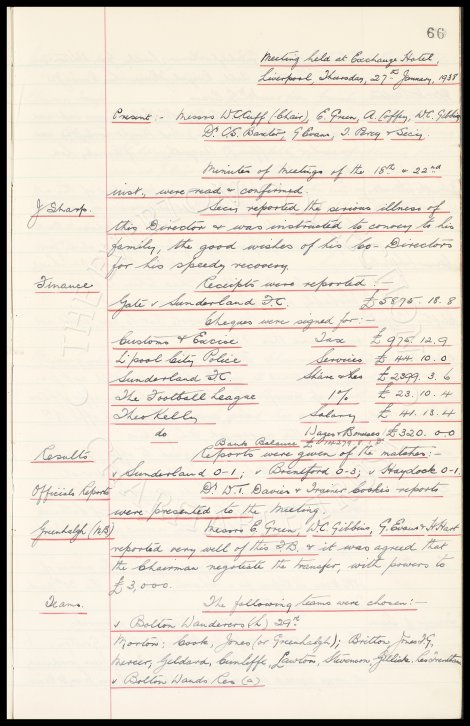 66
Meeting held at Exchange Hotel,
Liverpool Thursday, 27th January, 1938
Present :- Messrs W.C. Cuff (Chair), E. Green, A. Coffey, W.C. Gibbins,
Dr. C.S. Baxter, G. Evans, T. Percy & Secy.
Minutes of Meetings of the 18th & 22nd
inst., were read & confirmed.
J Sharp. Secy reported the serious illness of
this Director & was instructed to convey to his
family, the good wishes of his Co-Directors
for his speedy recovery.
Finance Receipts were reported :-
Gate v Sunderland F.C. £5875. 18. 8
Cheques were signed for :-
Customs & Excise Tax £975. 12. 9
L'pool City Police Services £44. 10. 0
Sunderland F.C. Share £2399. 3. 6
The Football League 1% £23. 10. 4
Theo Kelly Salary £41. 13. 4
do Wages & Bonuses £320. 0. 0
Bank Balance
Results Reports were given of the matches :-
v Sunderland 0-1; v Brentford 0-3; v Haydock 0-1.
Officials Reports Dr. D.T. Davies & Trainer Cooke's reports
were presented to the Meeting.
Greenhalgh (N.B) Messrs E. Green, W.C. Gibbins, G. Evans & H. Hart
reported very well of this F.B. & it was agreed that
the Chairman negotiate the transfer, with powers to
£3,000.
Teams. The following teams were chosen :-
v Bolton Wanderers (h) 29th
Morton; Cook, Jones (or Greenhalgh); Britton, Jones T.G,
Mercer, Geldard, Cunliffe, Lawton, Stevenson, Gillick. Res Trentham
v Bolton Wands Res (a)